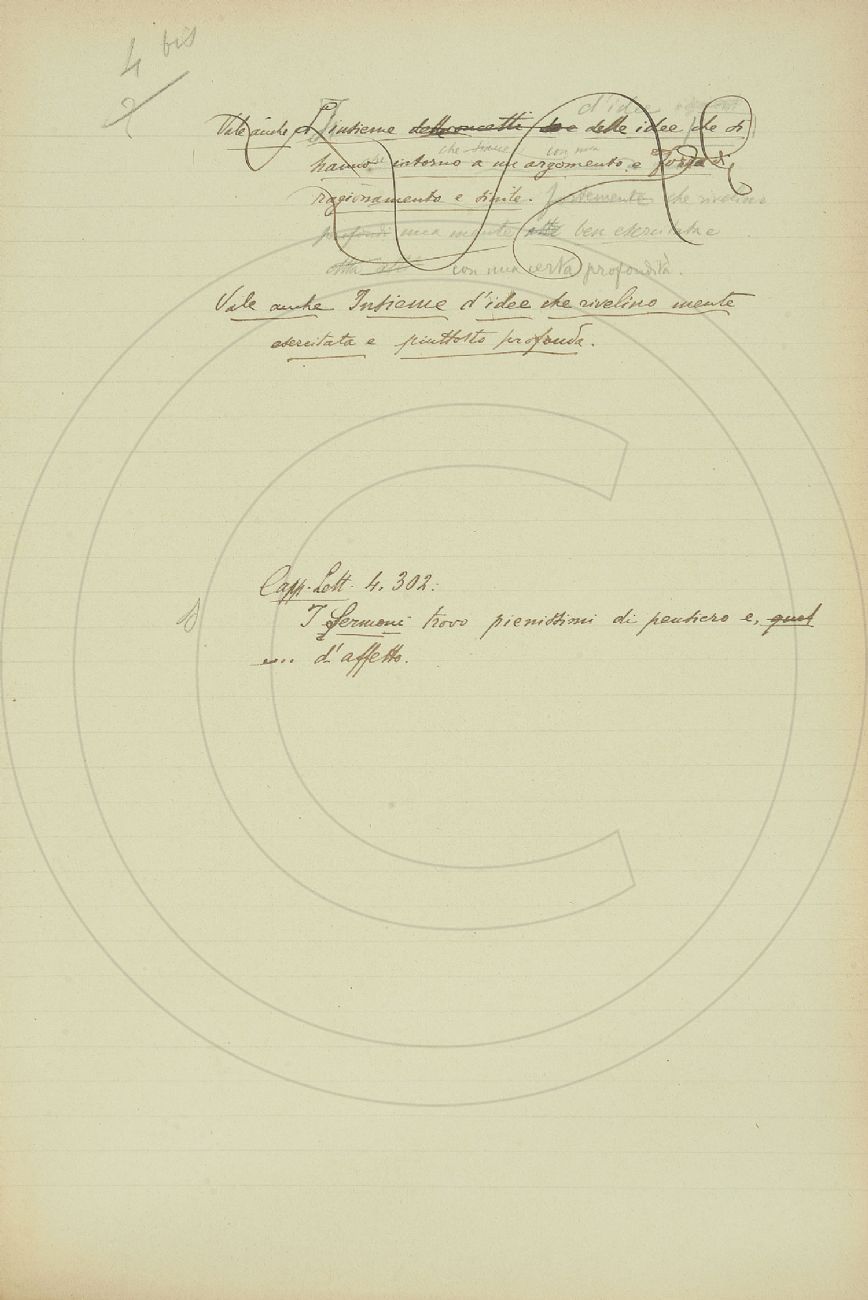 4 bis
2
d'idee
Vale anche L'insieme dei concetti delle idee che si
che si con una
hanno intorno a un argomento, e Forza di
ragionamento e simile. fortemente che rivelino
profondi una mente ben esercitata e
con una certa profondità.
Vale anche Insieme d'idee che rivelino mente
esercitata e piuttosto profonda.
Capp. Lett. 4. 302:
I Sermoni trovo pienissimi di pensiero e, quel
e... d'affetto.